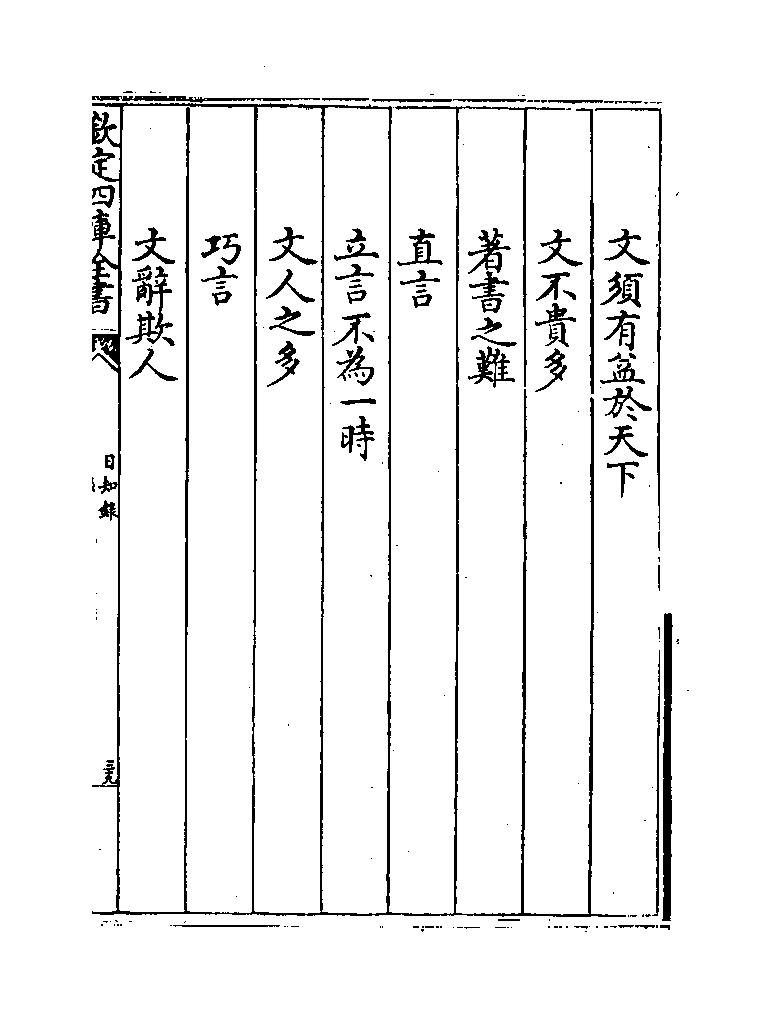 文須有益於天下
文不貴多
著書之難
直言
立言不為一時
文人之多
巧言
文辭欺人
欽定四庫全書
日知錄